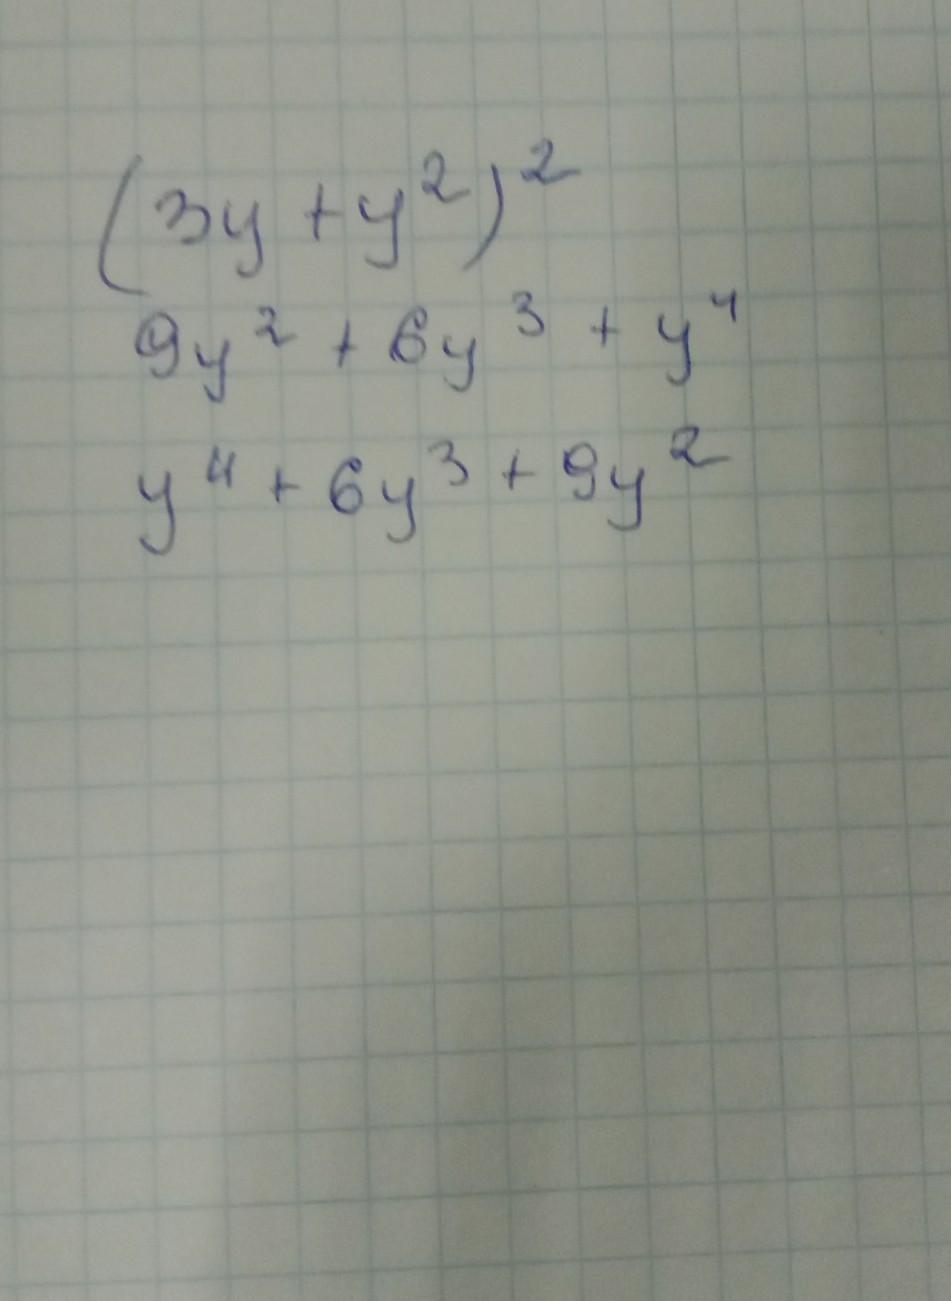 (3y + y²)²
9y² + 6y³ + y⁴
y⁴ + 6y³ + 9y²